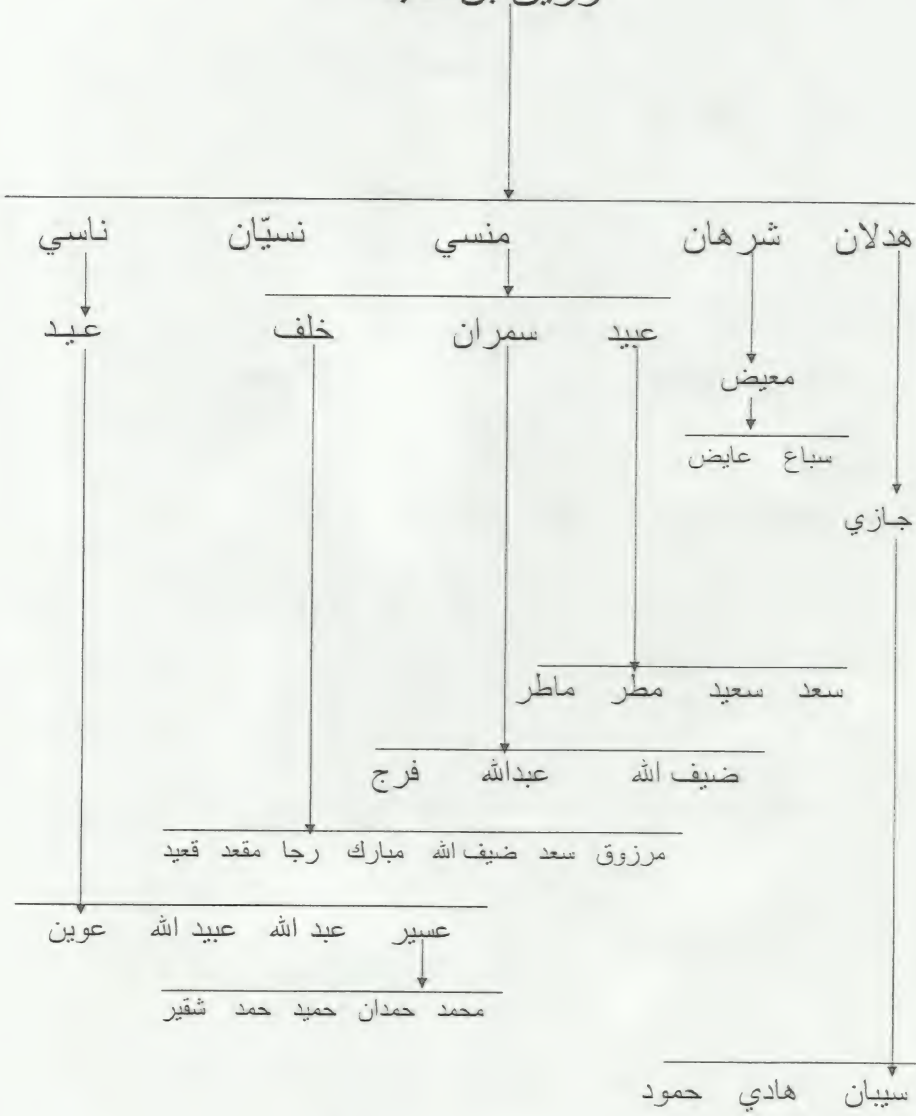 هدلان شرهان منسي نسيّان ناسي
عبيد سمران خلف عيد
معيض
سباع عايض
جازي
سعد سعيد مطر ماطر
ضيف الله عبدالله فرج
مرزوق سعد ضيف الله مبارك رجا مقعد قعيد
عسير عبد الله عبيد الله عوين
محمد حمدان حميد حمد شقير
سيبان هادي حمود